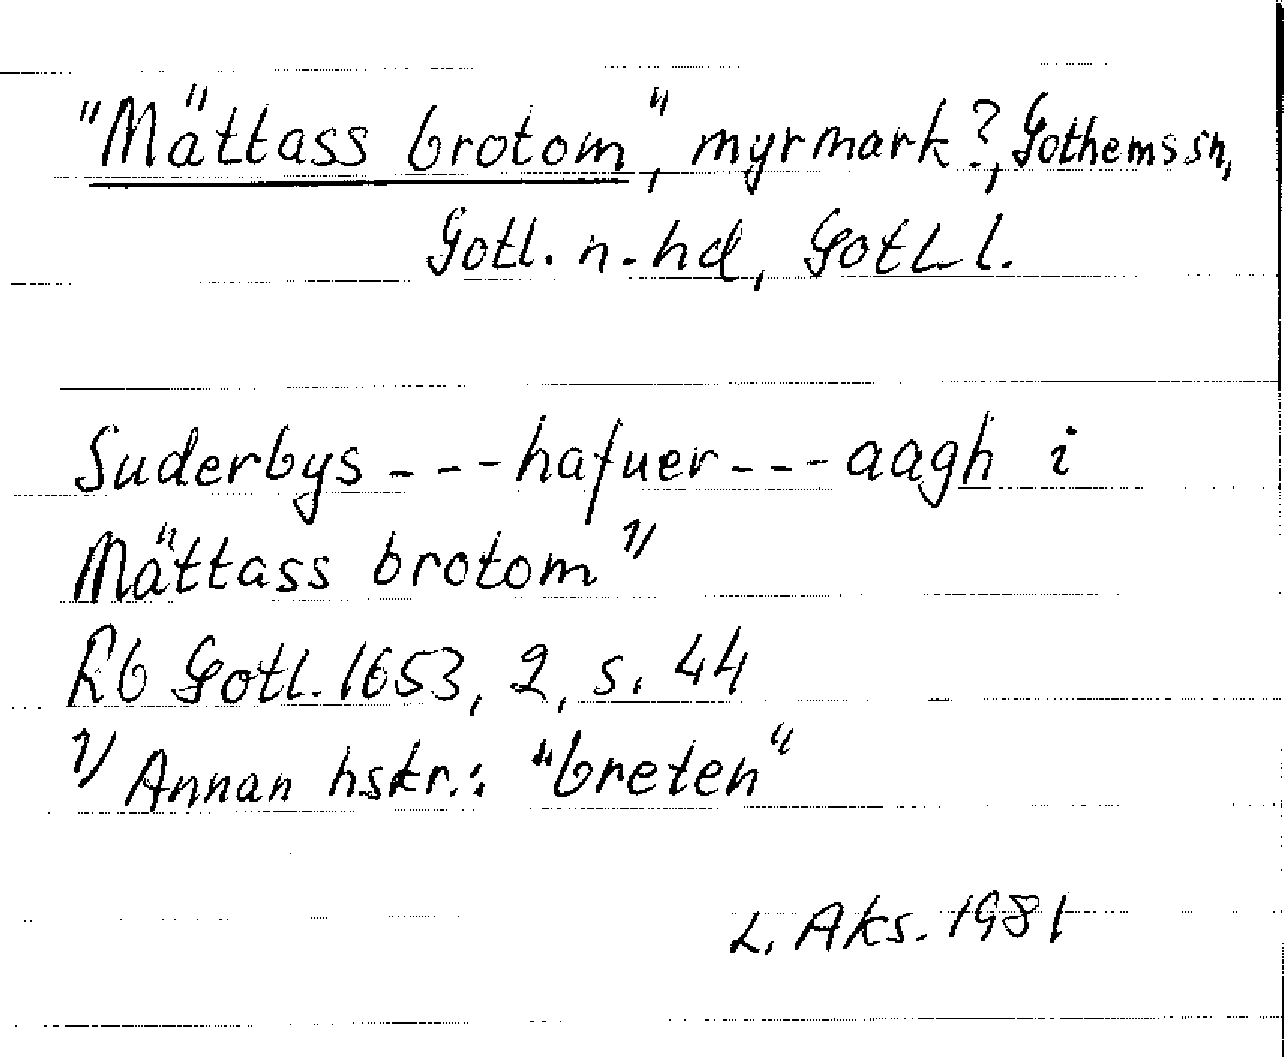 "Mättass brotom", myrmark?, Gothems sn,
Gotl. n. hd, Gotl. l.
Suderbys --- hafuer --- aagh i
Mättass brotom 1/
Rb Gotl. 1653, 2, s. 44
1/ Annan hskr.: "breten"
L. Aks. 1981